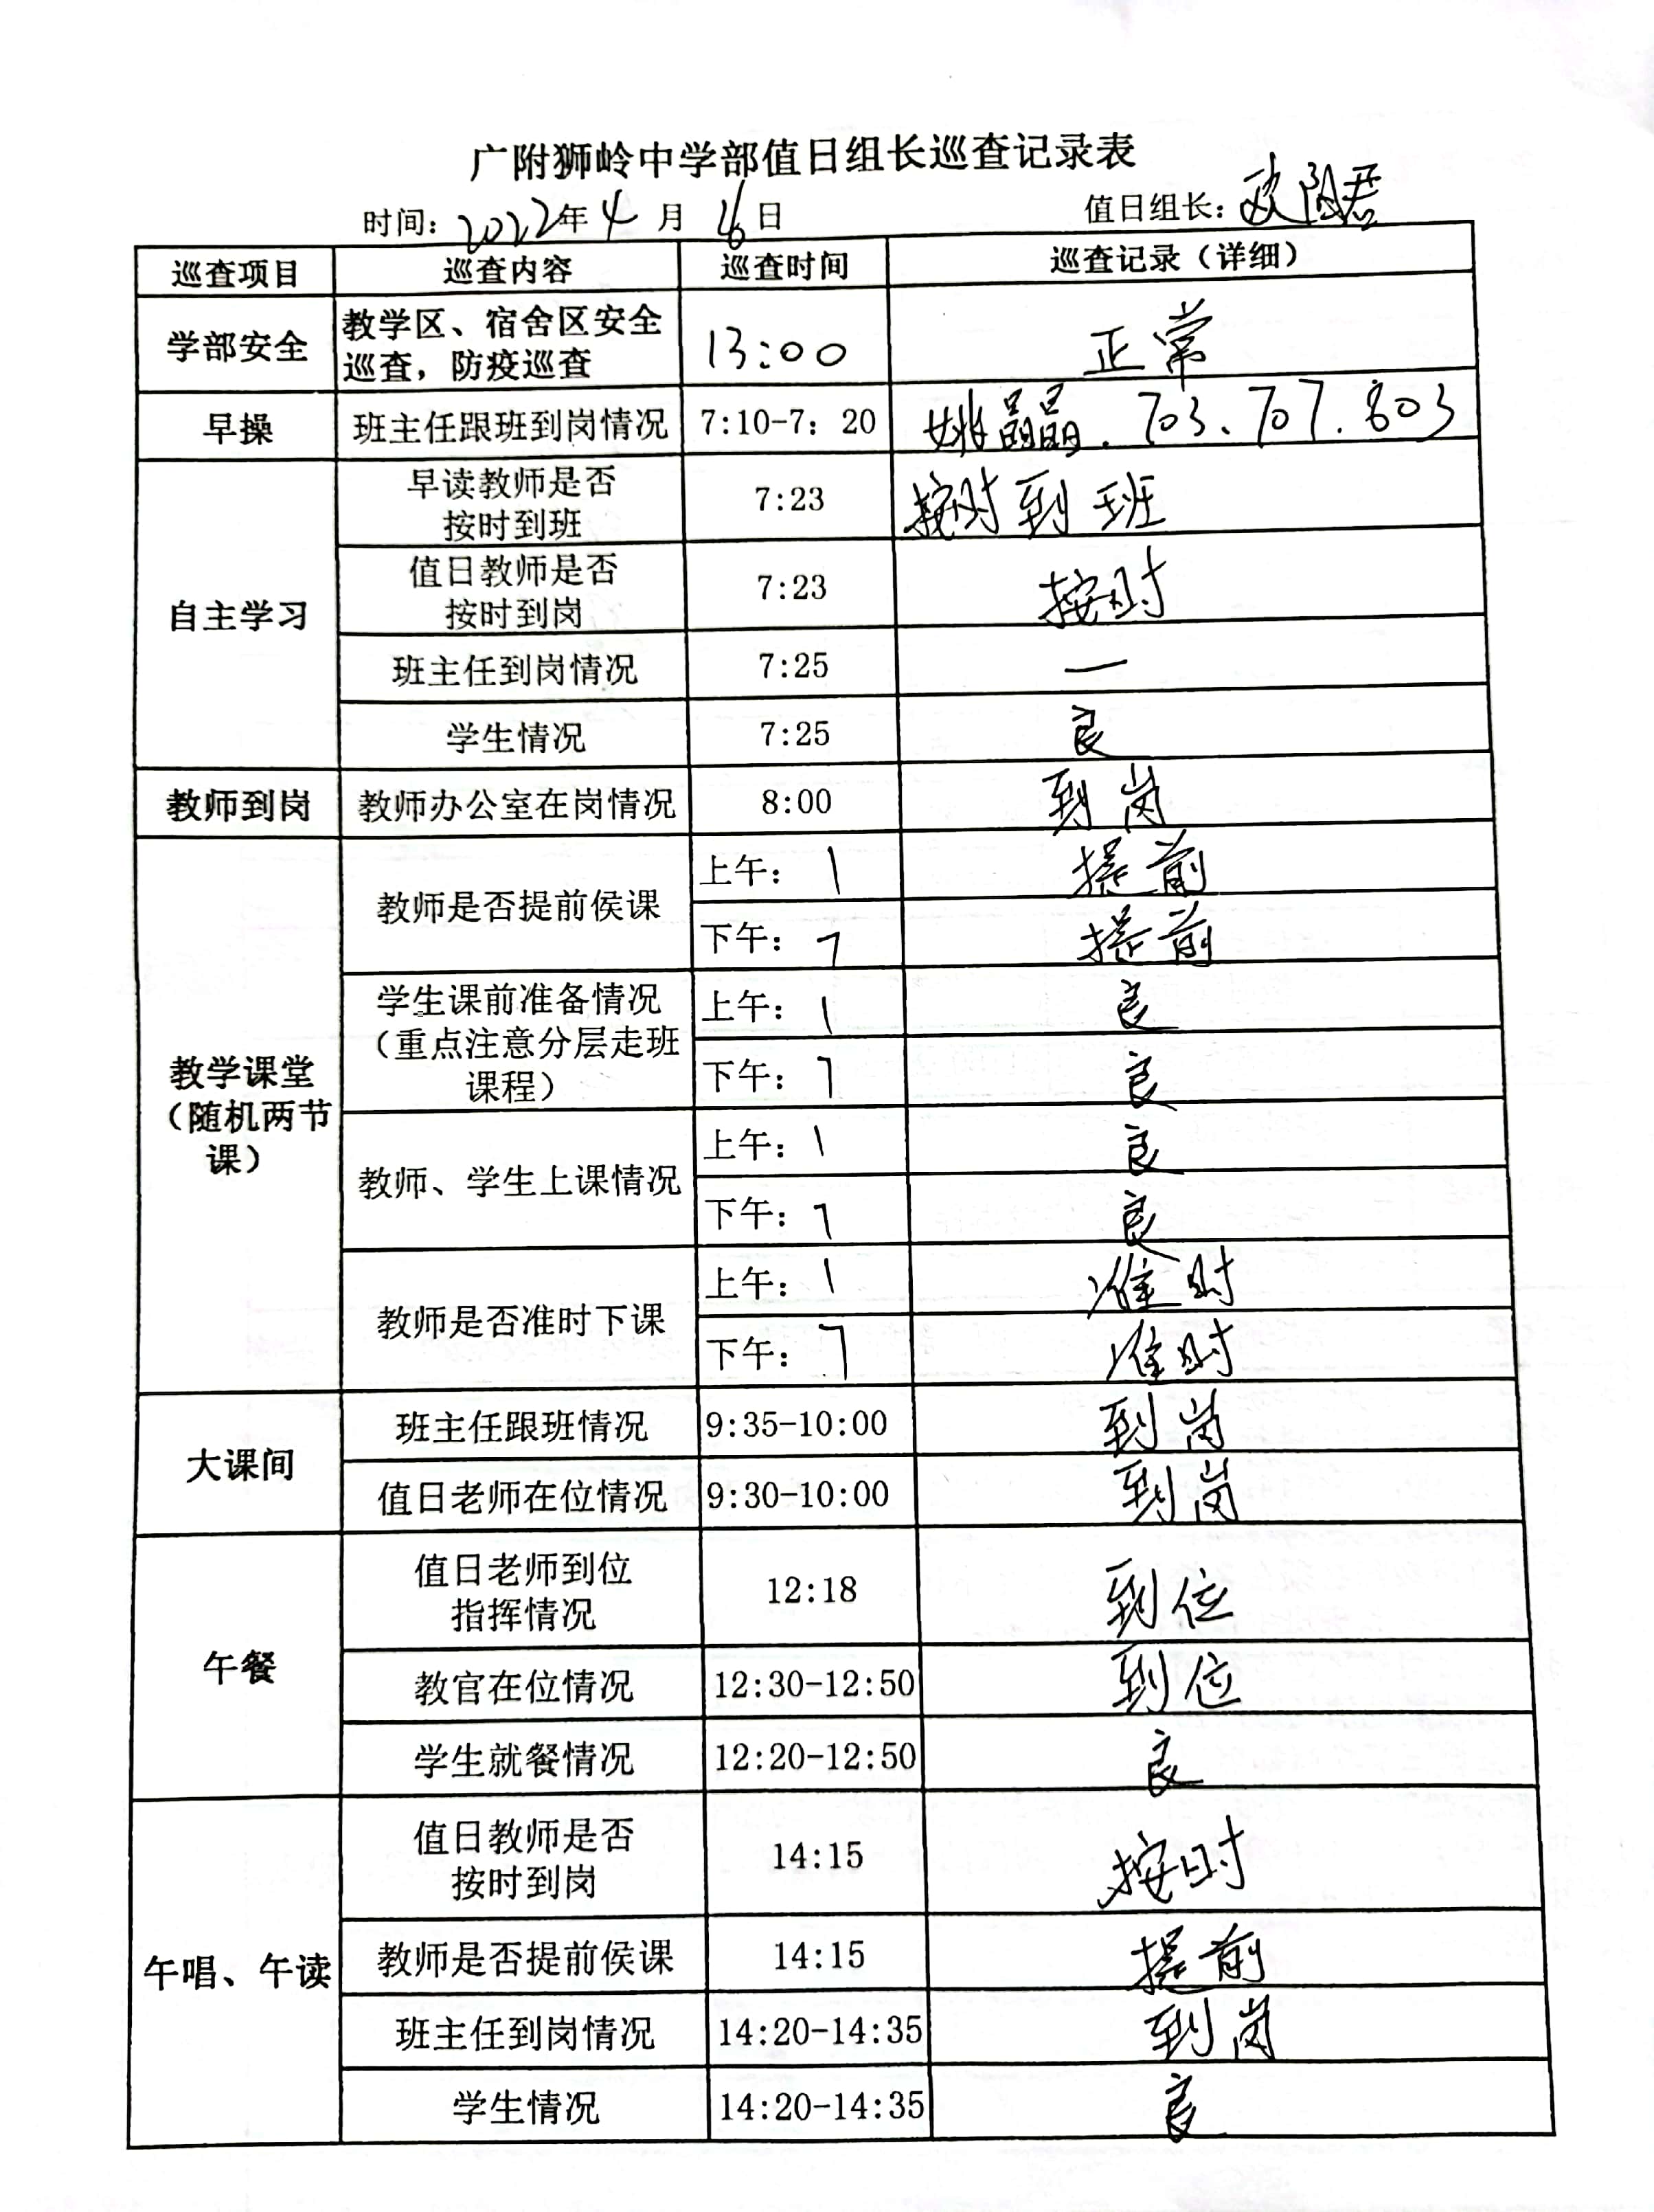 广附狮岭中学部值日组长巡查记录表
时间: 2022年 4 月 16日 值日组长: 欧阳君
巡查项目 巡查内容 巡查时间 巡查记录（详细）
学部安全 教学区、宿舍区安全 13:00 正常
巡查，防疫巡查
早操 班主任跟班到岗情况 7:10-7: 20 姚晶晶. 703、707. 803
自主学习 早读教师是否 7:23 按时到班
按时到班
值日教师是否 7:23 按时
按时到岗
班主任到岗情况 7:25 一
学生情况 7:25 良
教师到岗 教师办公室在岗情况 8:00 到岗
教学课堂
（随机两节
课）
教师是否提前侯课 上午: 1 提前
下午: 7 提前
学生课前准备情况 上午: 1 良
（重点注意分层走班
课程） 下午: 7 良
教师、学生上课情况 上午: 1 良
下午: 7 良
教师是否准时下课 上午: 1 准时
下午: 7 准时
大课间 班主任跟班情况 9:35-10:00 到岗
值日老师在位情况 9:30-10:00 到岗
午餐 值日老师到位 12:18 到位
指挥情况
教官在位情况 12:30-12:50 到位
学生就餐情况 12:20-12:50 良
午唱、午读 值日教师是否 14:15 按时
按时到岗
教师是否提前侯课 14:15 提前
班主任到岗情况 14:20-14:35 到岗
学生情况 14:20-14:35 良